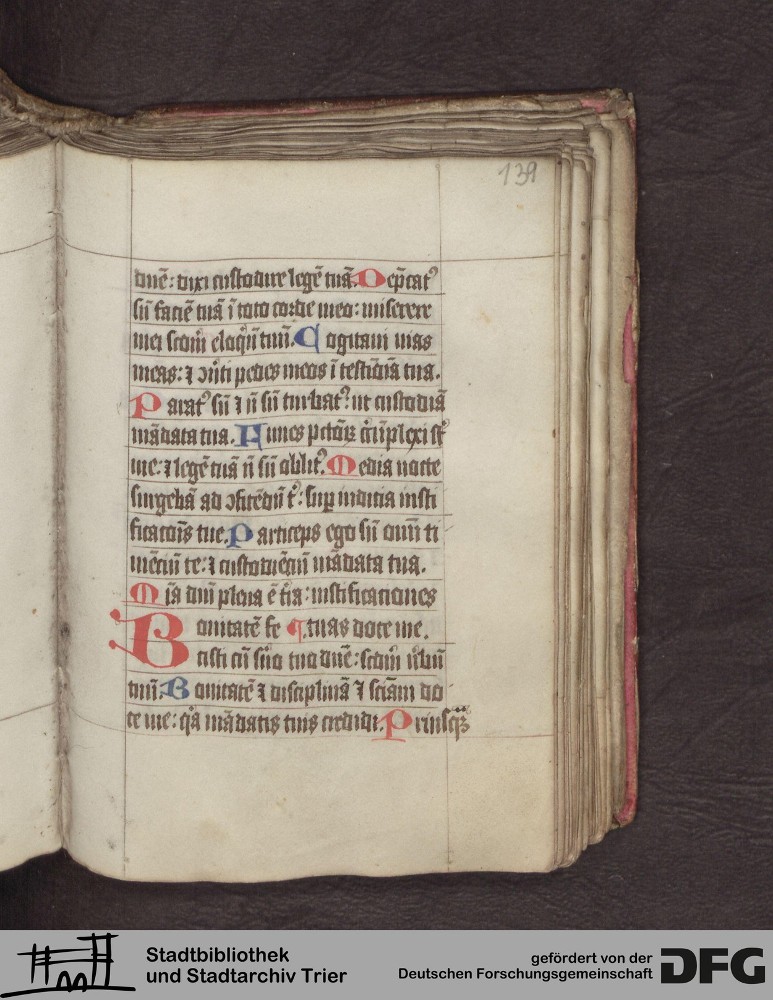 139
dñe: dixi custodire legē tuā. Dep̄cat⁹
sū faciē tuā ī toto corde meo: miserere
mei scd̄m eloq̇ū tuū. Cogitaui uias
meas: ⁊ ↄũti pedes meos ī testiōia tua.
Parat⁹ sū ⁊ nō sū turbat⁹: ut custodiā
mādata tua. Funes pctōꝝ circ̄ūplexi sʳ
me: ⁊ legē tuā nō sū oblit⁹. Media nocte
surgebā ad ↄfitēdū t̄: sup iudicia iusti
ficatiōis tue. Particeps ego sū omniū ti
mēciū te: ⁊ custodiēciū mādata tua.
Mīa dn̄i plena ē t̄ra: iustificationes
Bonitatē fe ¶ tuas doce me.
cisti cū suo tuo dñe: scd̄m u̇bū
tuū. Bonitatē ⁊ disciplinā ⁊ sciām do
ce me: q̇a mādatis tuis credidi. Priusq̄ꝫ
Stadtbibliothek
und Stadtarchiv Trier
gefördert von der
Deutschen Forschungsgemeinschaft
DFG